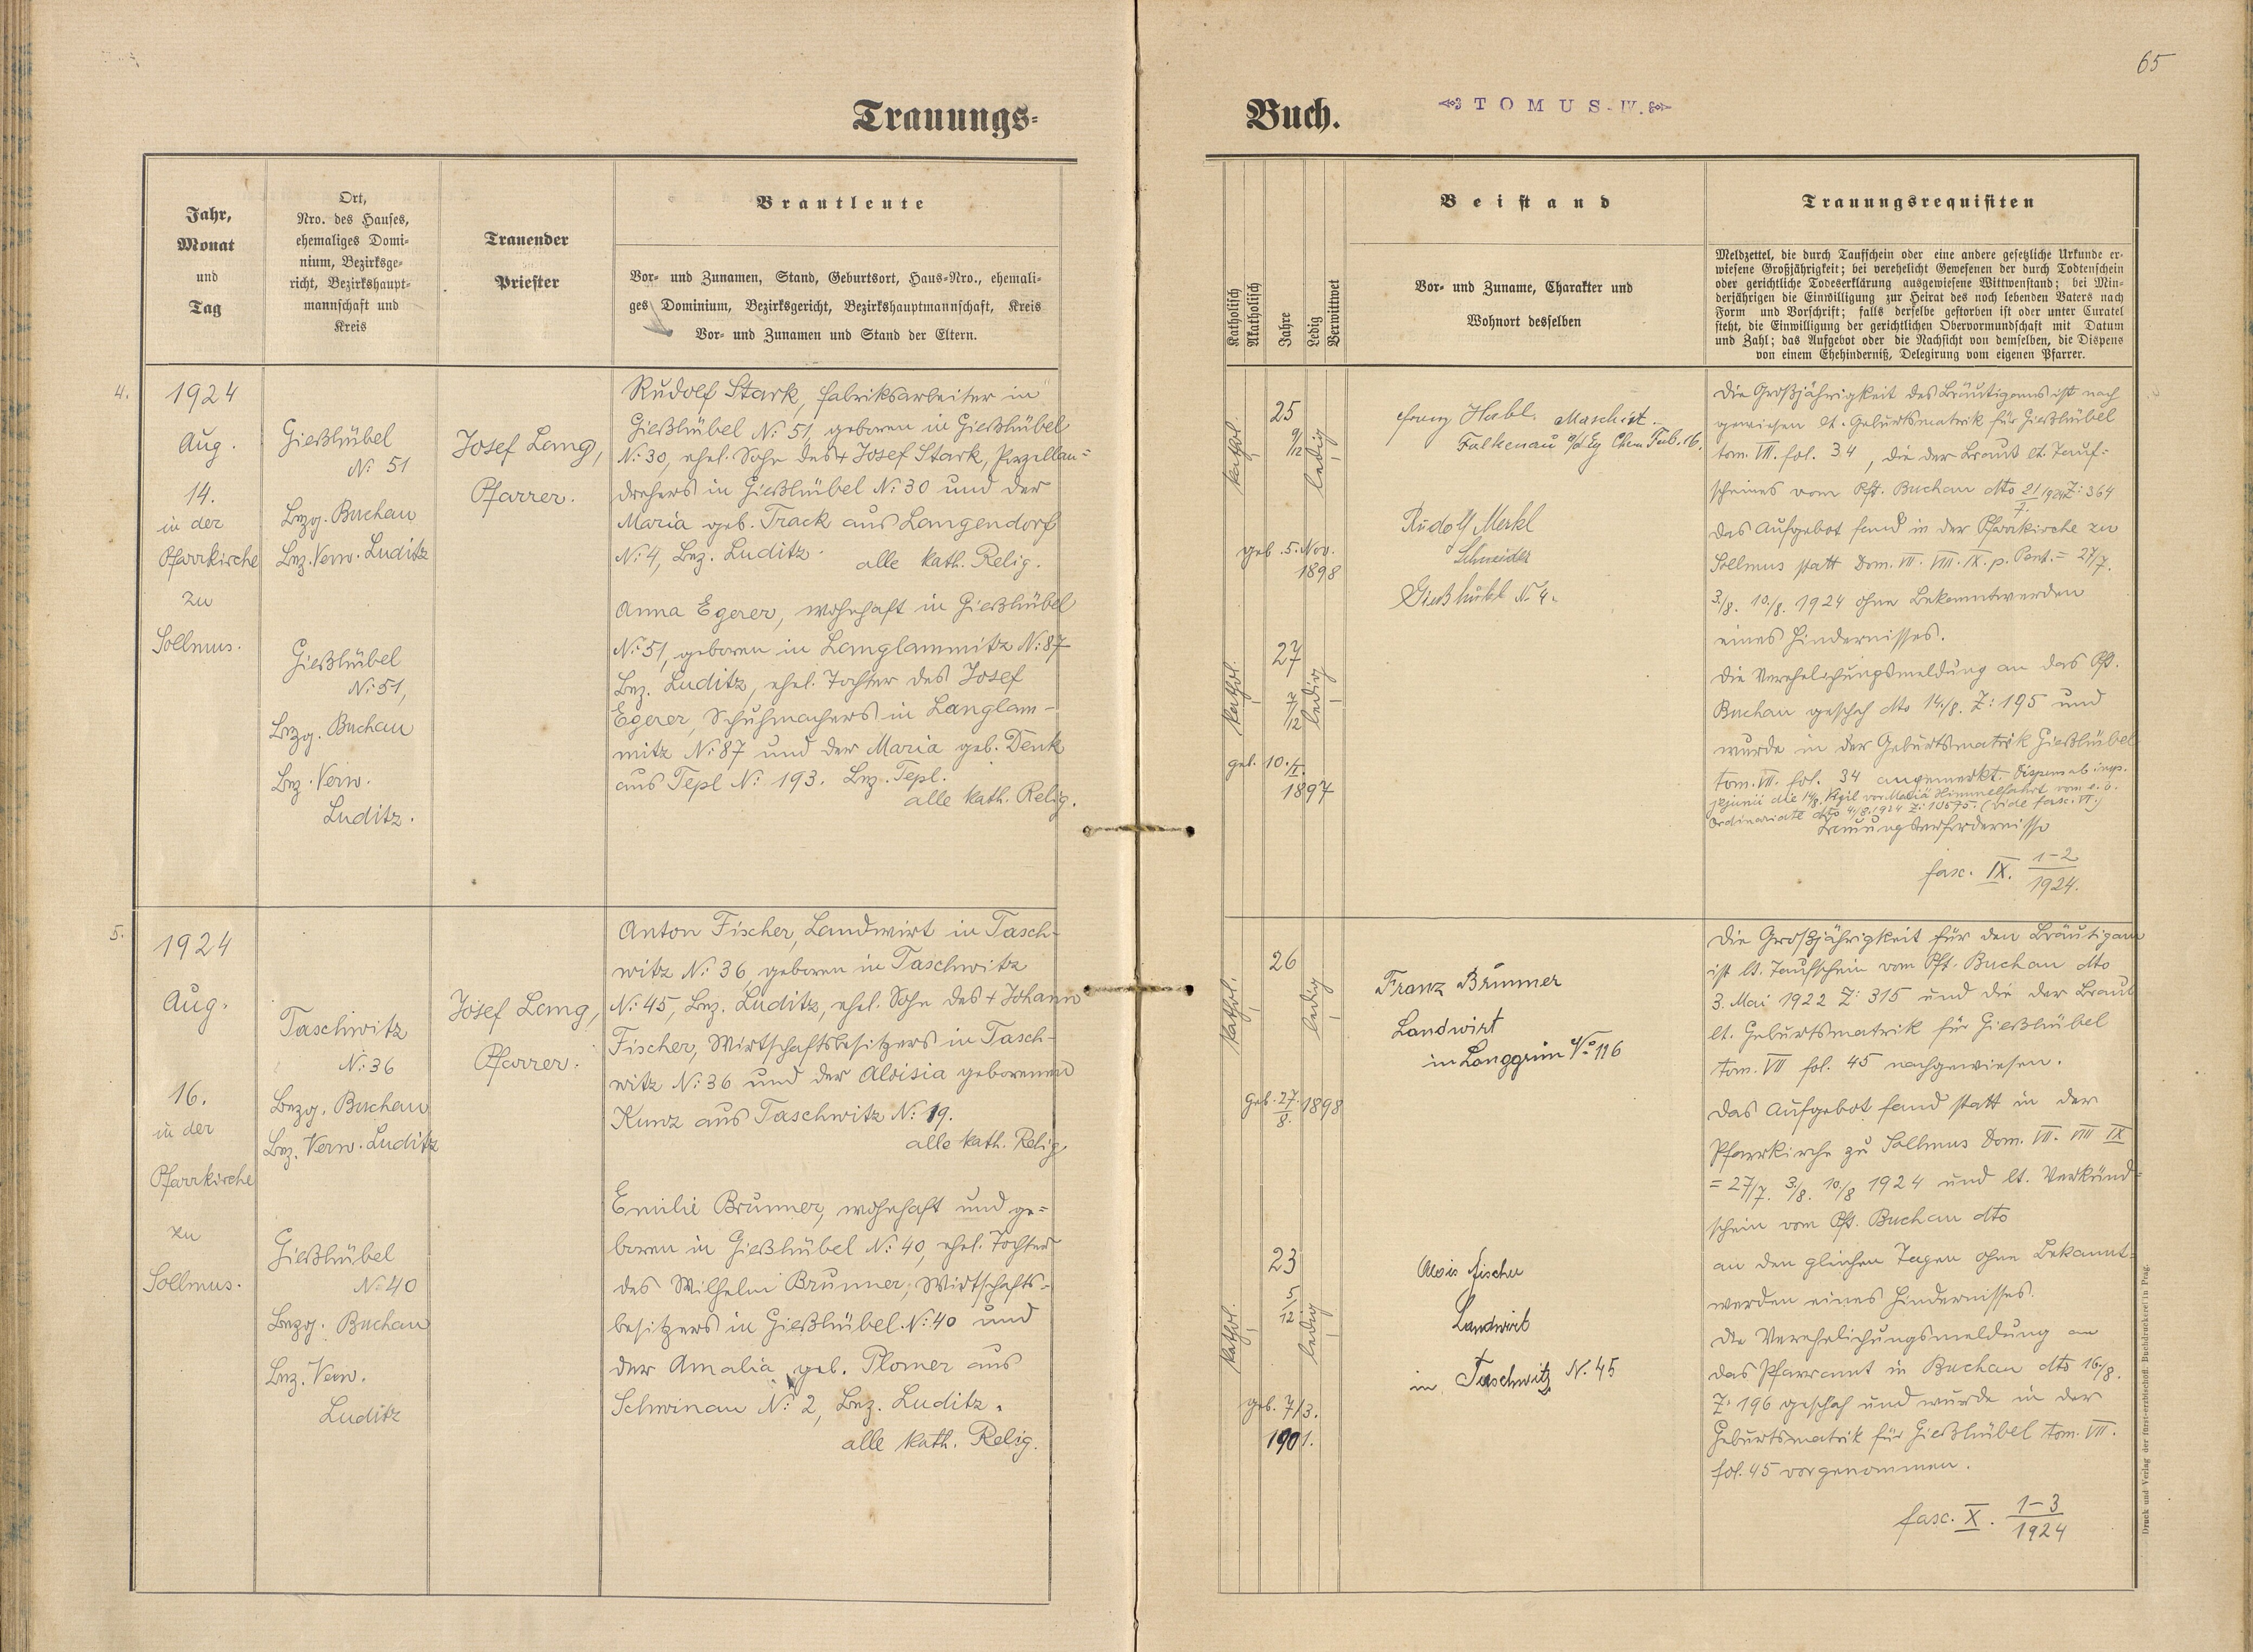 65
Trauungs-
Buch.
TOMUS IV.
Jahr,
Monat
und
Tag
Ort,
Nro. des Hauses,
ehemaliges Domi-
nium, Bezirksge-
richt, Bezirkshaupt-
mannschaft und
Kreis
Trauender
Priester
Brautleute
Vor- und Zunamen, Stand, Geburtsort, Haus-Nro., ehemali-
ges Dominium, Bezirksgericht, Bezirkshauptmannschaft, Kreis
Vor- und Zunamen und Stand der Eltern.
Katholisch
Akatholisch
Jahre
Ledig
Verwittwet
Beistand
Vor- und Zuname, Charakter und
Wohnort desselben
Trauungsrequisiten
Meldzettel, die durch Taufschein oder eine andere gesetzliche Urkunde er-
wiesene Großjährigkeit; bei verehelicht Gewesenen der durch Todtenschein
oder gerichtliche Todeserklärung ausgewiesene Wittwenstand; bei Min-
derjährigen die Einwilligung zur Heirat des noch lebenden Vaters nach
Form und Vorschrift; falls derselbe gestorben ist oder unter Curatel
steht, die Einwilligung der gerichtlichen Obervormundschaft mit Datum
und Zahl; das Aufgebot oder die Nachsicht von demselben, die Dispens
von einem Ehehinderniß, Delegirung vom eigenen Pfarrer.
4.
1924
Aug.
14.
in der
Pfarrkirche
zu
Sollmus.
Gießhübel
N: 51
Bezg. Buchau
Bez. Verw. Luditz
Gießhübel
N: 51,
Bezg. Buchau
Bez. Verw.
Luditz.
Josef Lang,
Pfarrer.
Rudolf Stark, Fabriksarbeiter in
Gießhübel N: 51, geboren in Gießhübel
N: 30, ehel. Sohn des + Josef Stark, Porzellan-
drehers in Gießhübel N: 30 und der
Maria geb. Track aus Langendorf
N: 4, Bez. Luditz.
alle kath. Relig.
Anna Egerer, wohnhaft in Gießhübel
N: 51, geboren in Langlammitz N: 87
Bez. Luditz, ehel. Tochter des Josef
Egerer, Schuhmachers in Langlam-
mitz N: 87 und der Maria geb. Denk
aus Tepl N: 193. Bez. Tepl.
alle kath. Relig.
kathol.
25
9/12
ledig
geb. 5. Nov.
1898
kathol.
27
7/12
ledig
geb. 10./I.
1897
Franz Habl. Maschist.
Falkenau a/d Eg Chem Fab.
Rudolf Merkl
Schneider
Gießhübl N. 4.
Die Großjährigkeit des Bräutigams ist nach
gewiesen lt. Geburtsmatrik für Gießhübel
tom. VII. fol. 34, die der Braut lt. Tauf-
scheines vom Pft. Buchau dto 21/7. 1924 Z: 364
Das Aufgebot fand in der Pfarrkirche zu
Sollmus statt Dom. VII. VIII. IX. p. Pent. = 27/7.
3./8. 10./8. 1924 ohne Bekanntwerden
eines Hindernisses.
Die Verehelichungsmeldung an das Pft.
Buchau geschah dto 14./8. Z: 195 und
wurde in der Geburtsmatrik Gießhübel
tom. VII. fol. 34 angemerkt. Dispens ab imp.
jejunii die 14/8. Vigil vor Mariä Himmelfahrt vom e. b.
Ordinariate dto 4/8. 1924 Z: 10575. (vide fasc. VI.)
Trauungserfordernisse
fasc. IX. 1-2/1924.
5.
1924
Aug.
16.
in der
Pfarrkirche
zu
Sollmus.
Taschwitz
N: 36
Bezg. Buchau
Bez. Verw. Luditz
Gießhübel
N: 40
Bezg. Buchau
Bez. Verw.
Luditz
Josef Lang,
Pfarrer.
Anton Fischer, Landwirt in Tasch-
witz N: 36, geboren in Taschwitz
N: 45, Bez. Luditz, ehel. Sohn des + Johann
Fischer, Wirtschaftsbesitzers in Tasch-
witz N: 36 und der Aloisia geborenen
Kunz aus Taschwitz N: 19.
alle kath. Relig.
Emilie Brunner, wohnhaft und ge-
boren in Gießhübel N: 40, ehel. Tochter
des Wilhelm Brunner, Wirtschafts-
besitzers in Gießhübel N: 40 und
der Amalia geb. Plomer aus
Schwinau N: 2, Bez. Luditz.
alle kath. Relig.
kathol.
26
ledig
geb. 27./8. 1898
kathol.
23
5/12
ledig
geb. 7/3.
1901.
Franz Brunner
Landwirt
in Langgrün No 116
Alois Fischer
Landwirt
in Taschwitz N. 45
Die Großjährigkeit für den Bräutigam
ist lt. Taufschein vom Pft. Buchau dto
3. Mai 1922 Z: 315 und die der Braut
lt. Geburtsmatrik für Gießhübel
tom. VII fol. 45 nachgewiesen.
Das Aufgebot fand statt in der
Pfarrkirche zu Sollmus Dom. VII. VIII IX
= 27/7. 3./8. 10./8 1924 und lt. Verkünd-
schein vom Pft. Buchau dto
an den gleichen Tagen ohne Bekannt-
werden eines Hindernisses.
Die Verehelichungsmeldung an
das Pfarramt in Buchau dto 16./8.
Z: 196 geschah und wurde in der
Geburtsmatrik für Gießhübel tom. VII.
fol. 45 vorgenommen.
fasc. X. 1-3/1924
Druck und Verlag der fürst-erzbischöfl. Buchdruckerei in Prag.